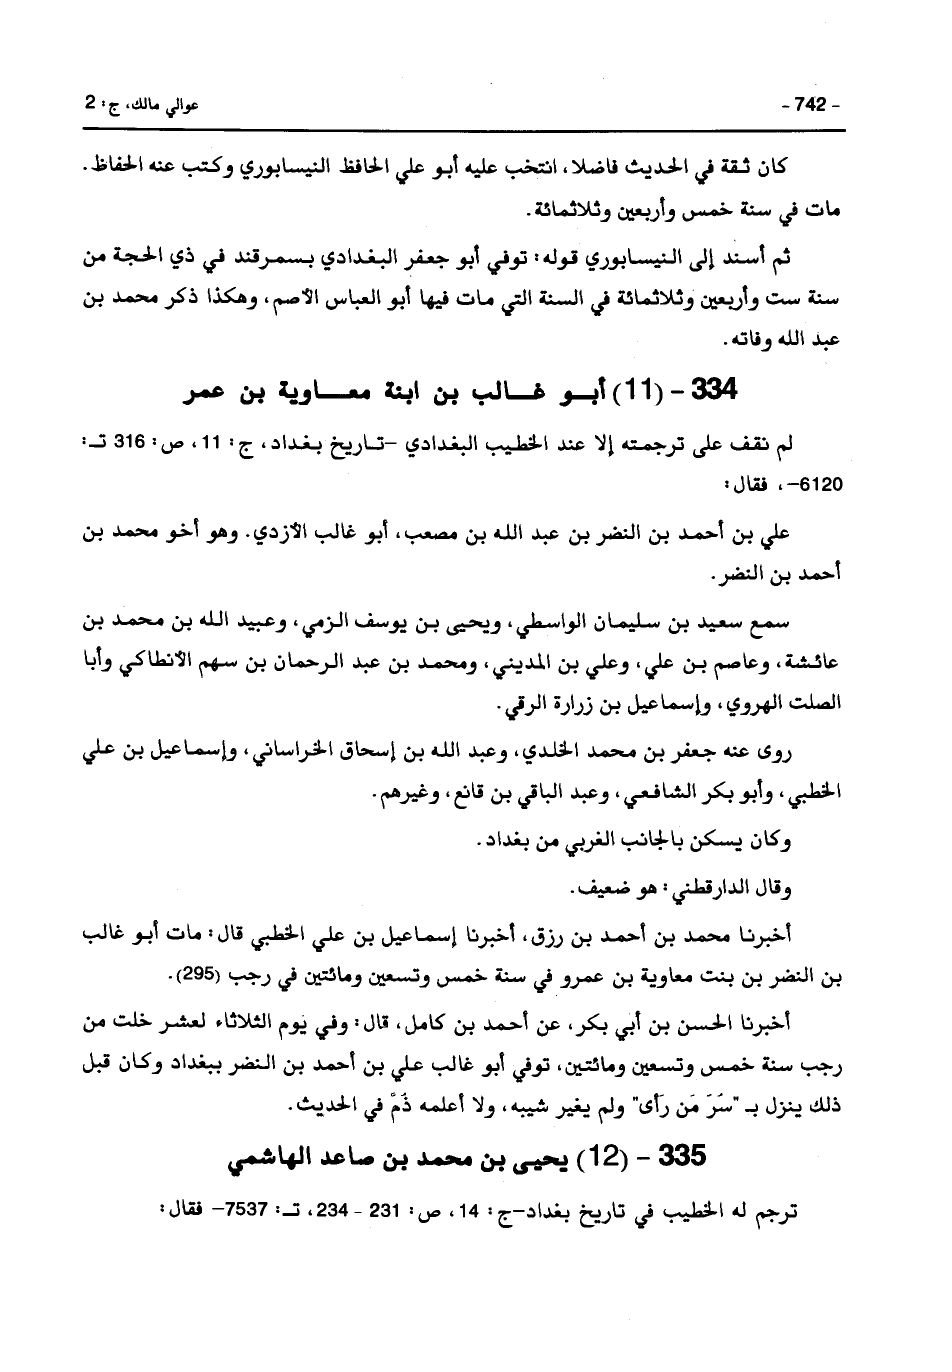 - 742 - عوالي مالك، ج: 2
كان ثقة في الحديث فاضلا، انتخب عليه أبو علي الحافظ النيسابوري وكتب عنه الحفاظ.
مات في سنة خمس وأربعين وثلاثمائة.
ثم أسند إلى النيسابوري قوله: توفي أبو جعفر البغدادي بسمرقند في ذي الحجة من
سنة ست وأربعين وثلاثمائة في السنة التي مات فيها أبو العباس الأصم، وهكذا ذكر محمد بن
عبد الله وفاته.
334 - (11) أبو غالب بن ابنة معاوية بن عمر
لم نقف على ترجمته إلا عند الخطيب البغدادي –تاريخ بغداد، ج: 11، ص: 316 تـ:
6120–، فقال:
علي بن أحمد بن النضر بن عبد الله بن مصعب، أبو غالب الأزدي. وهو أخو محمد بن
أحمد بن النضر.
سمع سعيد بن سليمان الواسطي، ويحيى بن يوسف الزمي، وعبيد الله بن محمد بن
عائشة، وعاصم بن علي، وعلي بن المديني، ومحمد بن عبد الرحمان بن سهم الأنطاكي وأبا
الصلت الهروي، وإسماعيل بن زرارة الرقي.
روى عنه جعفر بن محمد الخلدي، وعبد الله بن إسحاق الخراساني، وإسماعيل بن علي
الخطبي، وأبو بكر الشافعي، وعبد الباقي بن قانع، وغيرهم.
وكان يسكن بالجانب الغربي من بغداد.
وقال الدارقطني: هو ضعيف.
أخبرنا محمد بن أحمد بن رزق، أخبرنا إسماعيل بن علي الخطبي قال: مات أبو غالب
بن النضر بن بنت معاوية بن عمرو في سنة خمس وتسعين ومائتين في رجب (295).
أخبرنا الحسن بن أبي بكر، عن أحمد بن كامل، قال: وفي يوم الثلاثاء لعشر خلت من
رجب سنة خمس وتسعين ومائتين، توفي أبو غالب علي بن أحمد بن النضر ببغداد وكان قبل
ذلك ينزل بـ "سُرَ مَن رَأى" ولم يغير شيبه، ولا أعلمه ذُمَّ في الحديث.
335 - (12) يحيى بن محمد بن صاعد الهاشمي
ترجم له الخطيب في تاريخ بغداد–ج: 14، ص: 231 - 234، تـ: 7537– فقال: